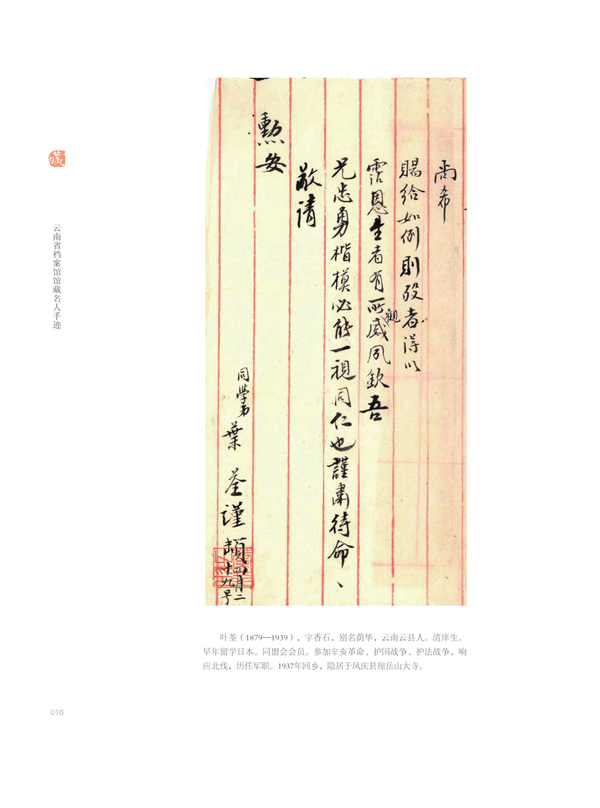 尚希
賜給如例則歿者得以
霑恩生者有所觀感夙欽吾
兄忠勇楷模必能一視同仁也謹肅待命、
敬請
勳安
同學弟
葉荃謹頓
四月二十九号
藏
云南省档案馆馆藏名人手迹
叶荃（1879—1939），字香石，别名荫华，云南云县人。清庠生。
早年留学日本。同盟会会员。参加辛亥革命、护国战争、护法战争，响
应北伐、历任军职。1937年回乡，隐居于凤庆县琼岳山大寺。
016